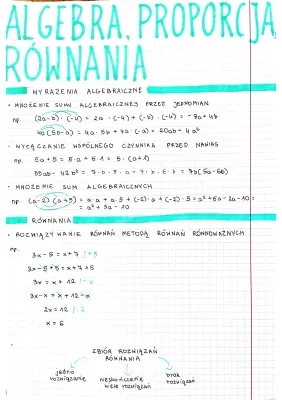 ALGEBRA, PROPORCJA,
RÓWNANIA
WYRAŻENIA ALGEBRAICZNE
• MNOŻENIE SUMY ALGEBRAICZNEJ PRZEZ JEDNOMIAN
np. (2a-b)·(-4) = 2a·(-4)+(-b)·(-4) = -8a+4b
4a(5b-a) = 4a·5b + 4a·(-a) = 20ab - 4a²
• WYŁĄCZANIE WSPÓLNEGO CZYNNIKA PRZED NAWIAS
np. 5a+5 = 5·a + 5·1 = 5·(a+1)
35ab - 42b² = 7·5·a·b - 7·6·b·b = 7b(5a-6b)
• MNOŻENIE SUM ALGEBRAICZNYCH
np. (a-2)(a+5) = a·a + a·5 + (-2)·a + (-2)·5 = a²+5a-2a-10 =
= a² + 3a - 10
RÓWNANIA
• ROZWIĄZYWANIE RÓWNAŃ METODĄ RÓWNAŃ RÓWNOWAŻNYCH
np.
3x-5 = x+7 /+5
3x-5+5 = x+7+5
3x = x + 12 /-x
3x-x = x+12-x
2x = 12 /:2
x = 6
ZBIÓR ROZWIĄZAŃ
RÓWNANIA
jedno rozwiązanie
nieskończenie wiele rozwiązań
brak rozwiązań